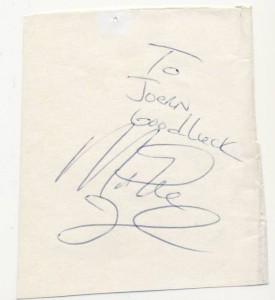 To
Joern
Goodluck